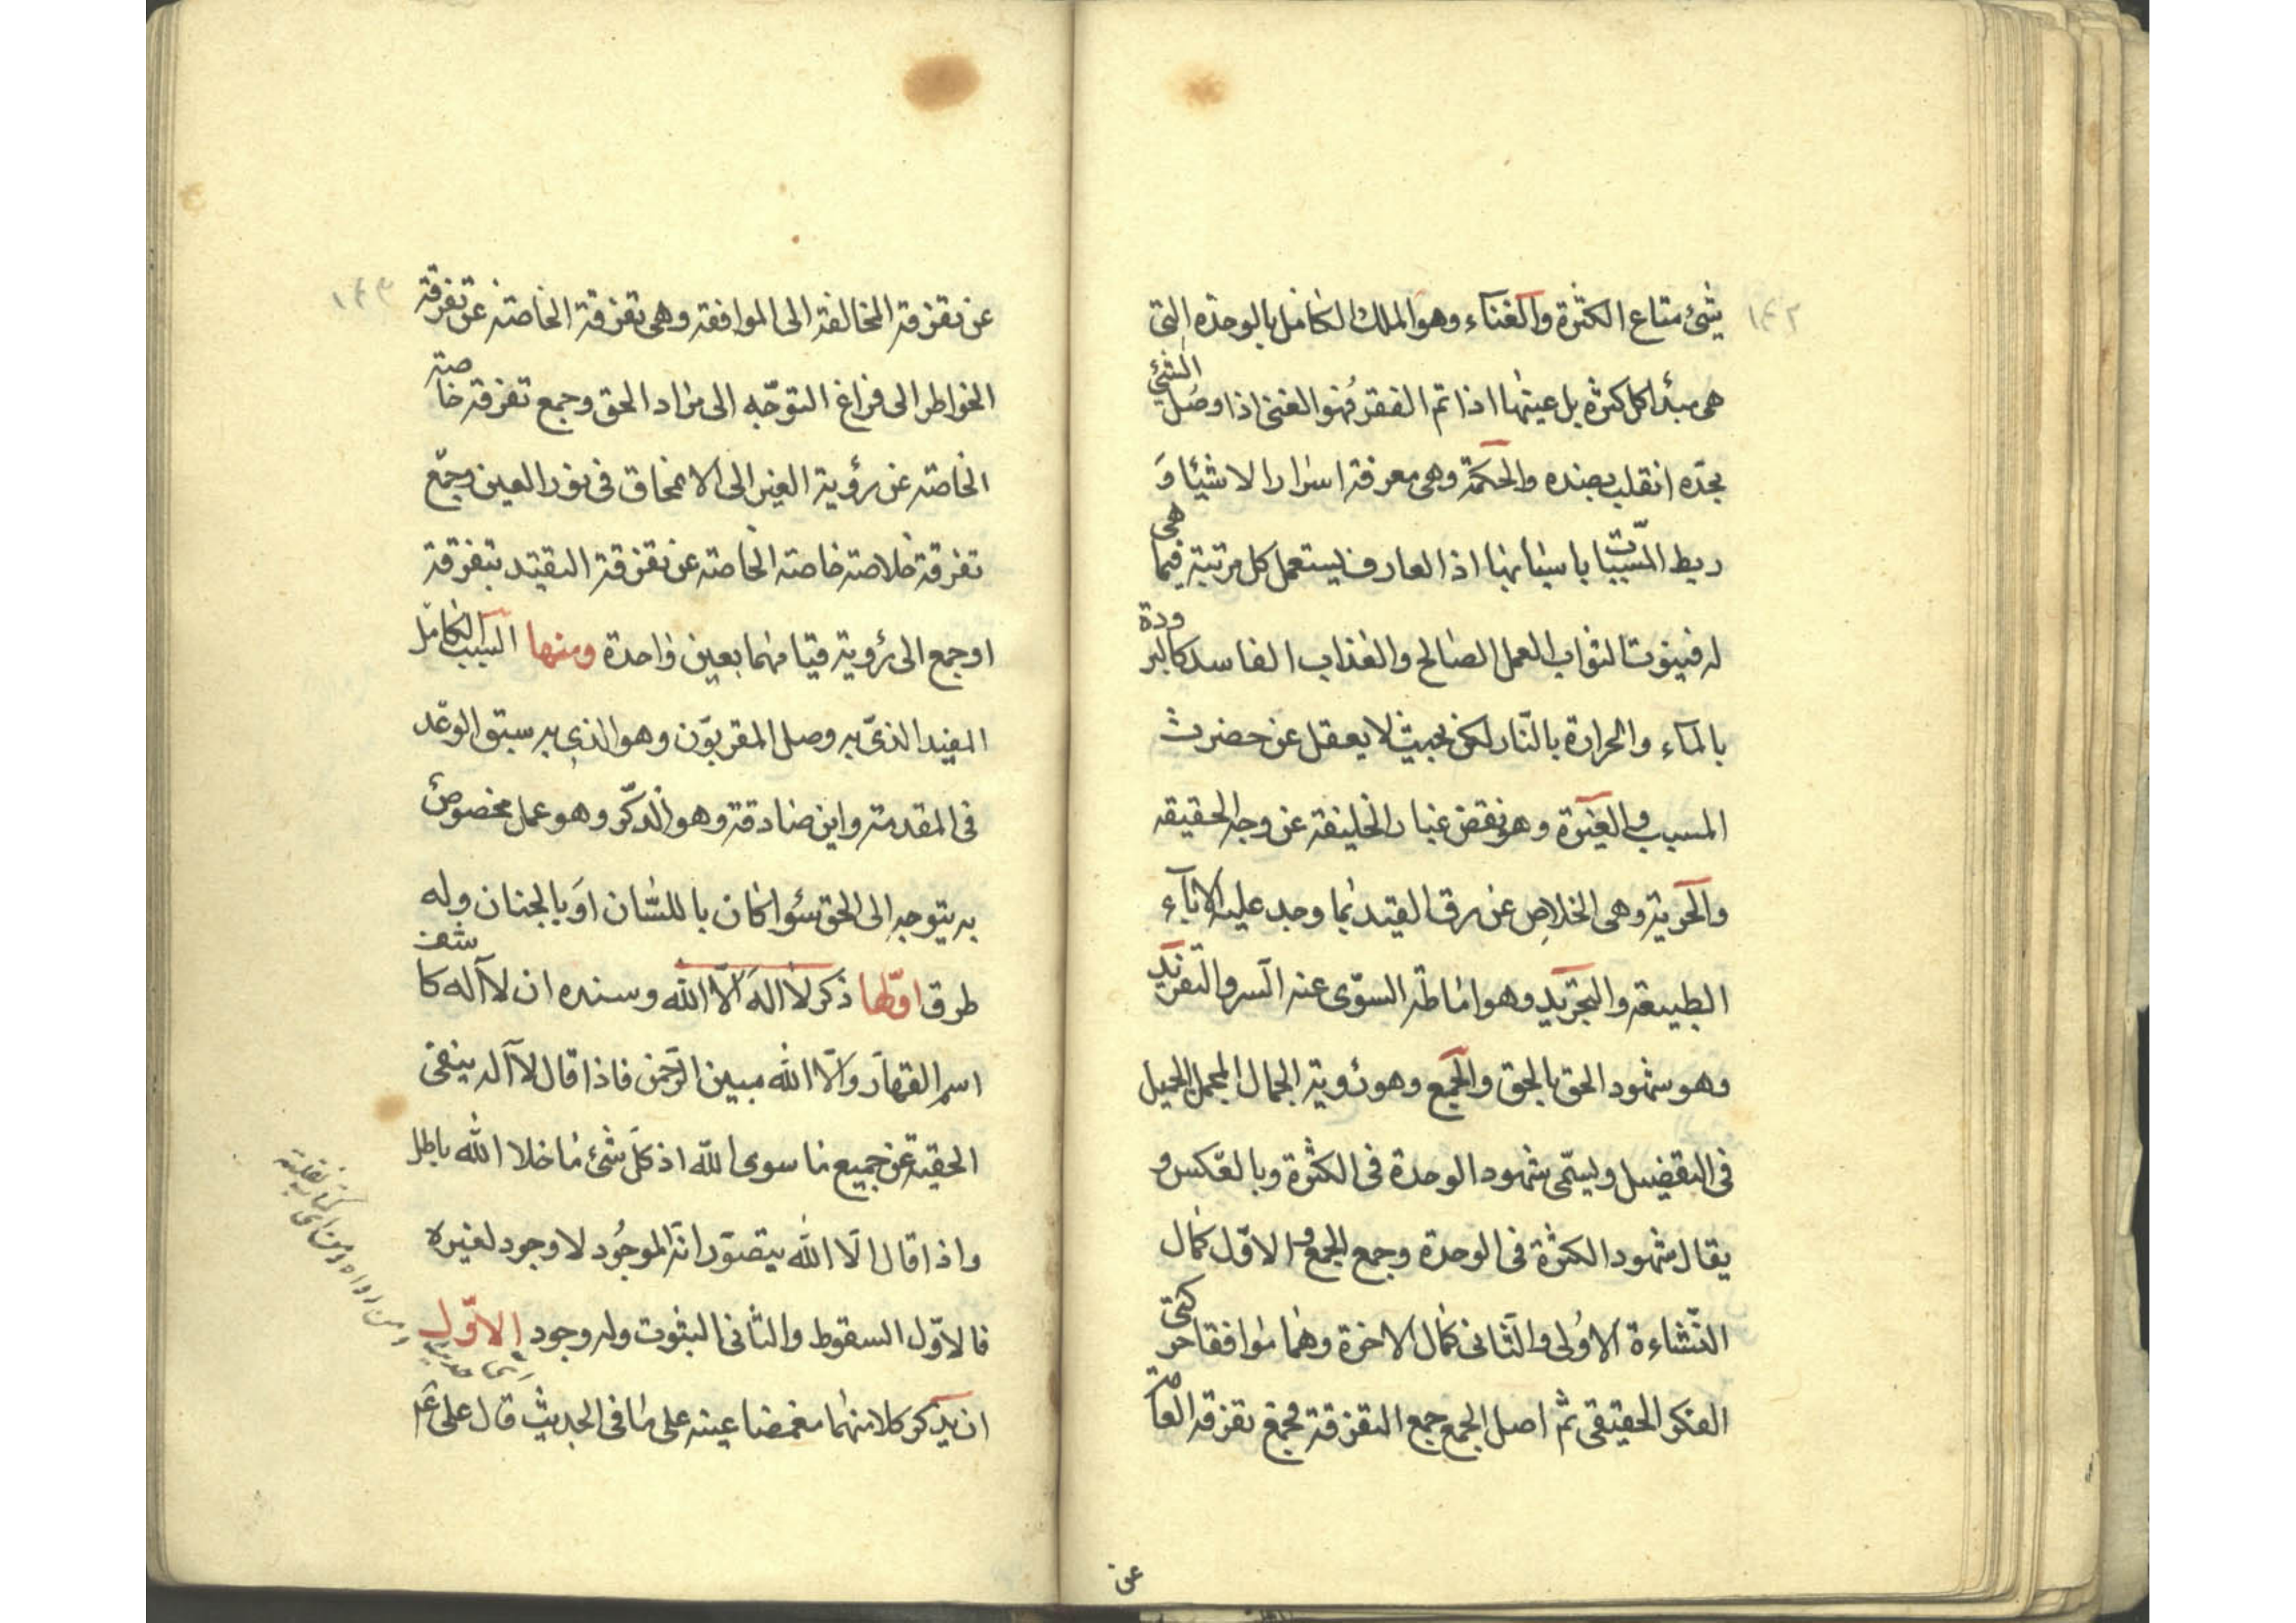 ١٤٢
شئ متاع الكثرة والغنآء وهو الملك الكامل بالوحدة التى
هى مبدأ كل كثرة بل عينها اذا تم الفقر فهو الغنى اذا وصل الشئ
بحدّه انقلب بضده والحكمة وهى معرفة اسرار الاشيئا وَ
ربط المسّببات باسبابها اذ العارف ليستعمل كل مرتبة فيما هى
له فينوت الثواب العمل الصالح والعذاب الفاسد كالبرودة
بالمآء والحرارة بالنّار لكن بحيث لا يعقل عن حضرت
المسبب والغيرة وهو نقض غبار الخليقة عن وجه الحقيقه
والحرية وهى الخلاص عن رق القيد بما وجد عليه الاباء
الطبيعة والتجريد وهو اماطة السوّى عنه السر والتفريد
وهو شهود الحق بالحق والجمع وهو رؤية الجمال المجمل الجميل
فى التفضيل ويسمّى شهود الوحدة فى الكثرة وبالعكس و
يقال شهود الكثرة فى الوحدة وجمع الجمع و الاوّل كمال
النّشاءة الاوُلى والثانى كمال الاخرة وهما موافقا حركتى
الفكر الحقيقى ثم اصل الجمع جمع التفرقة فجمع تفرقة العامة
عن
١٤٣
عن تفرقة المخالفة الى الموافقة وهى تفرقة الخاصة عن تفرقة
الخواطر الى فراغ التوجّه الى مراد الحق وجمع تفرقة خاصة
الخاصة عن رؤية الغير الى الامحاق فى نور العين وجمّع
تفرقة خلاصة خاصة الخاصة عن تفرقة التقيّد بتفرقة
او جمع الى رؤية قيامهما بعين واحدة ومنها السبب الكامل
المفيد الذىّ به وصل المقربوّن وهو الذى به سبق الوعد
فى المقدمة واين صادقة وهو الذكّر وهو عمل مخصوص
به يتوجه الى الحق سواكان باللسّان اَو بالجنان وله
طرق اوّلها ذكر لا اله الاّ الله وسنده ان لا آله كاشف
اسم القهار والاّ الله مبين الرّحمن فاذا قال لا آله ينفى
الحقية عن جميع ما سوى اللّه اذ كلّ شئ ما خلا الله باطل
واذا قال الاّ الله يتصوّر انّه الموجُود لا وجود لغيره
فالاوّل السقوط والثانى الثبوت وله وجود الاوّل
ان يذكر كلا منهما مغمضا عينه على ما فى الحديث قال على